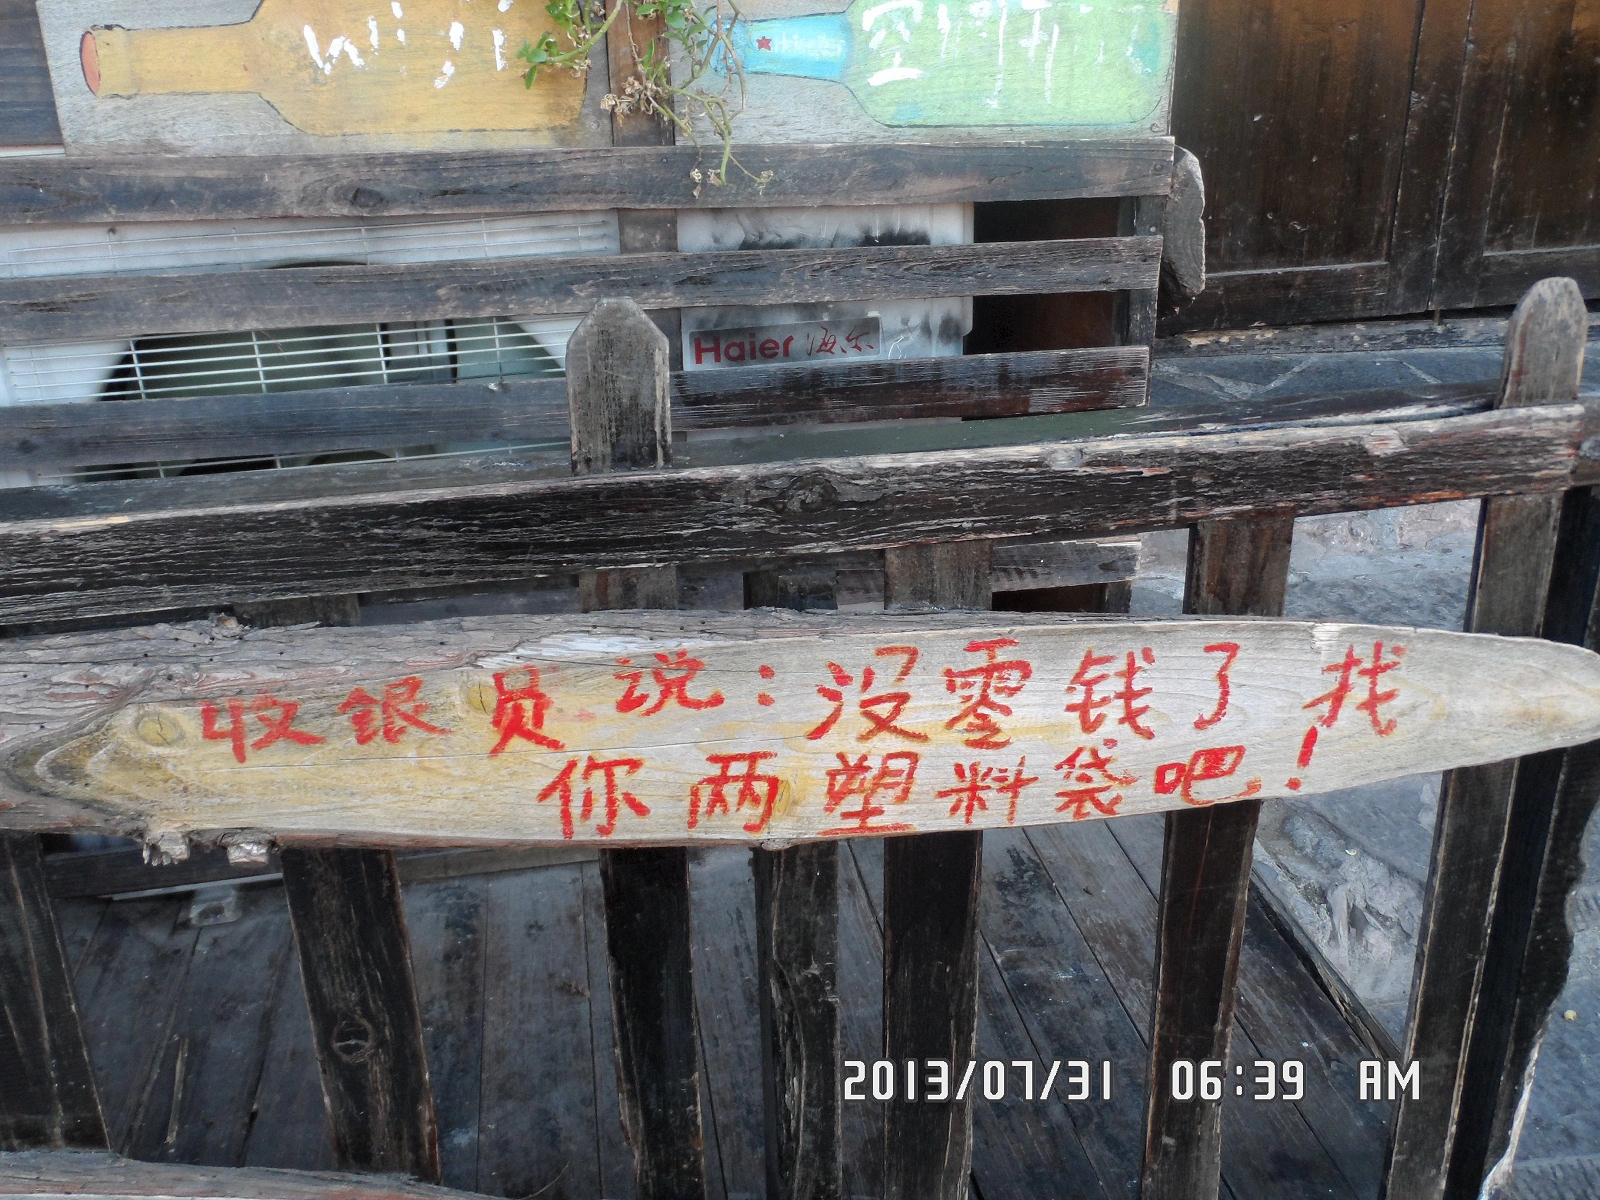 Haier 海尔
收银员说：没零钱了找
你两塑料袋吧！
2013/07/31 06:39 AM